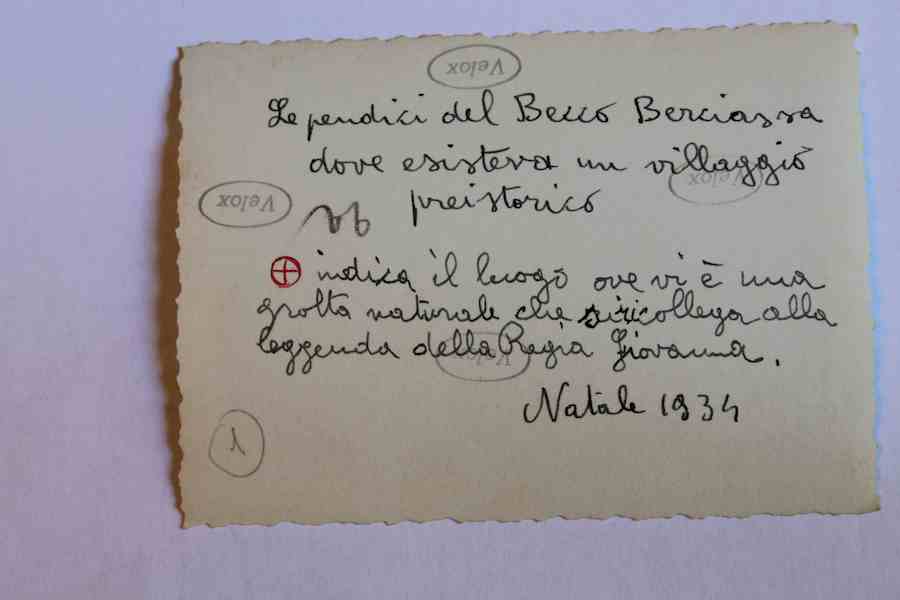 Velox
Le pendici del Becco Berciassa
dove esisteva un villaggio
Velox
Velox
preistorico
⊕ indica il luogo ove vi è una
grotta naturale che si ricollega alla
leggenda della Regia Giovanna.
Velox
Natale 1934
1